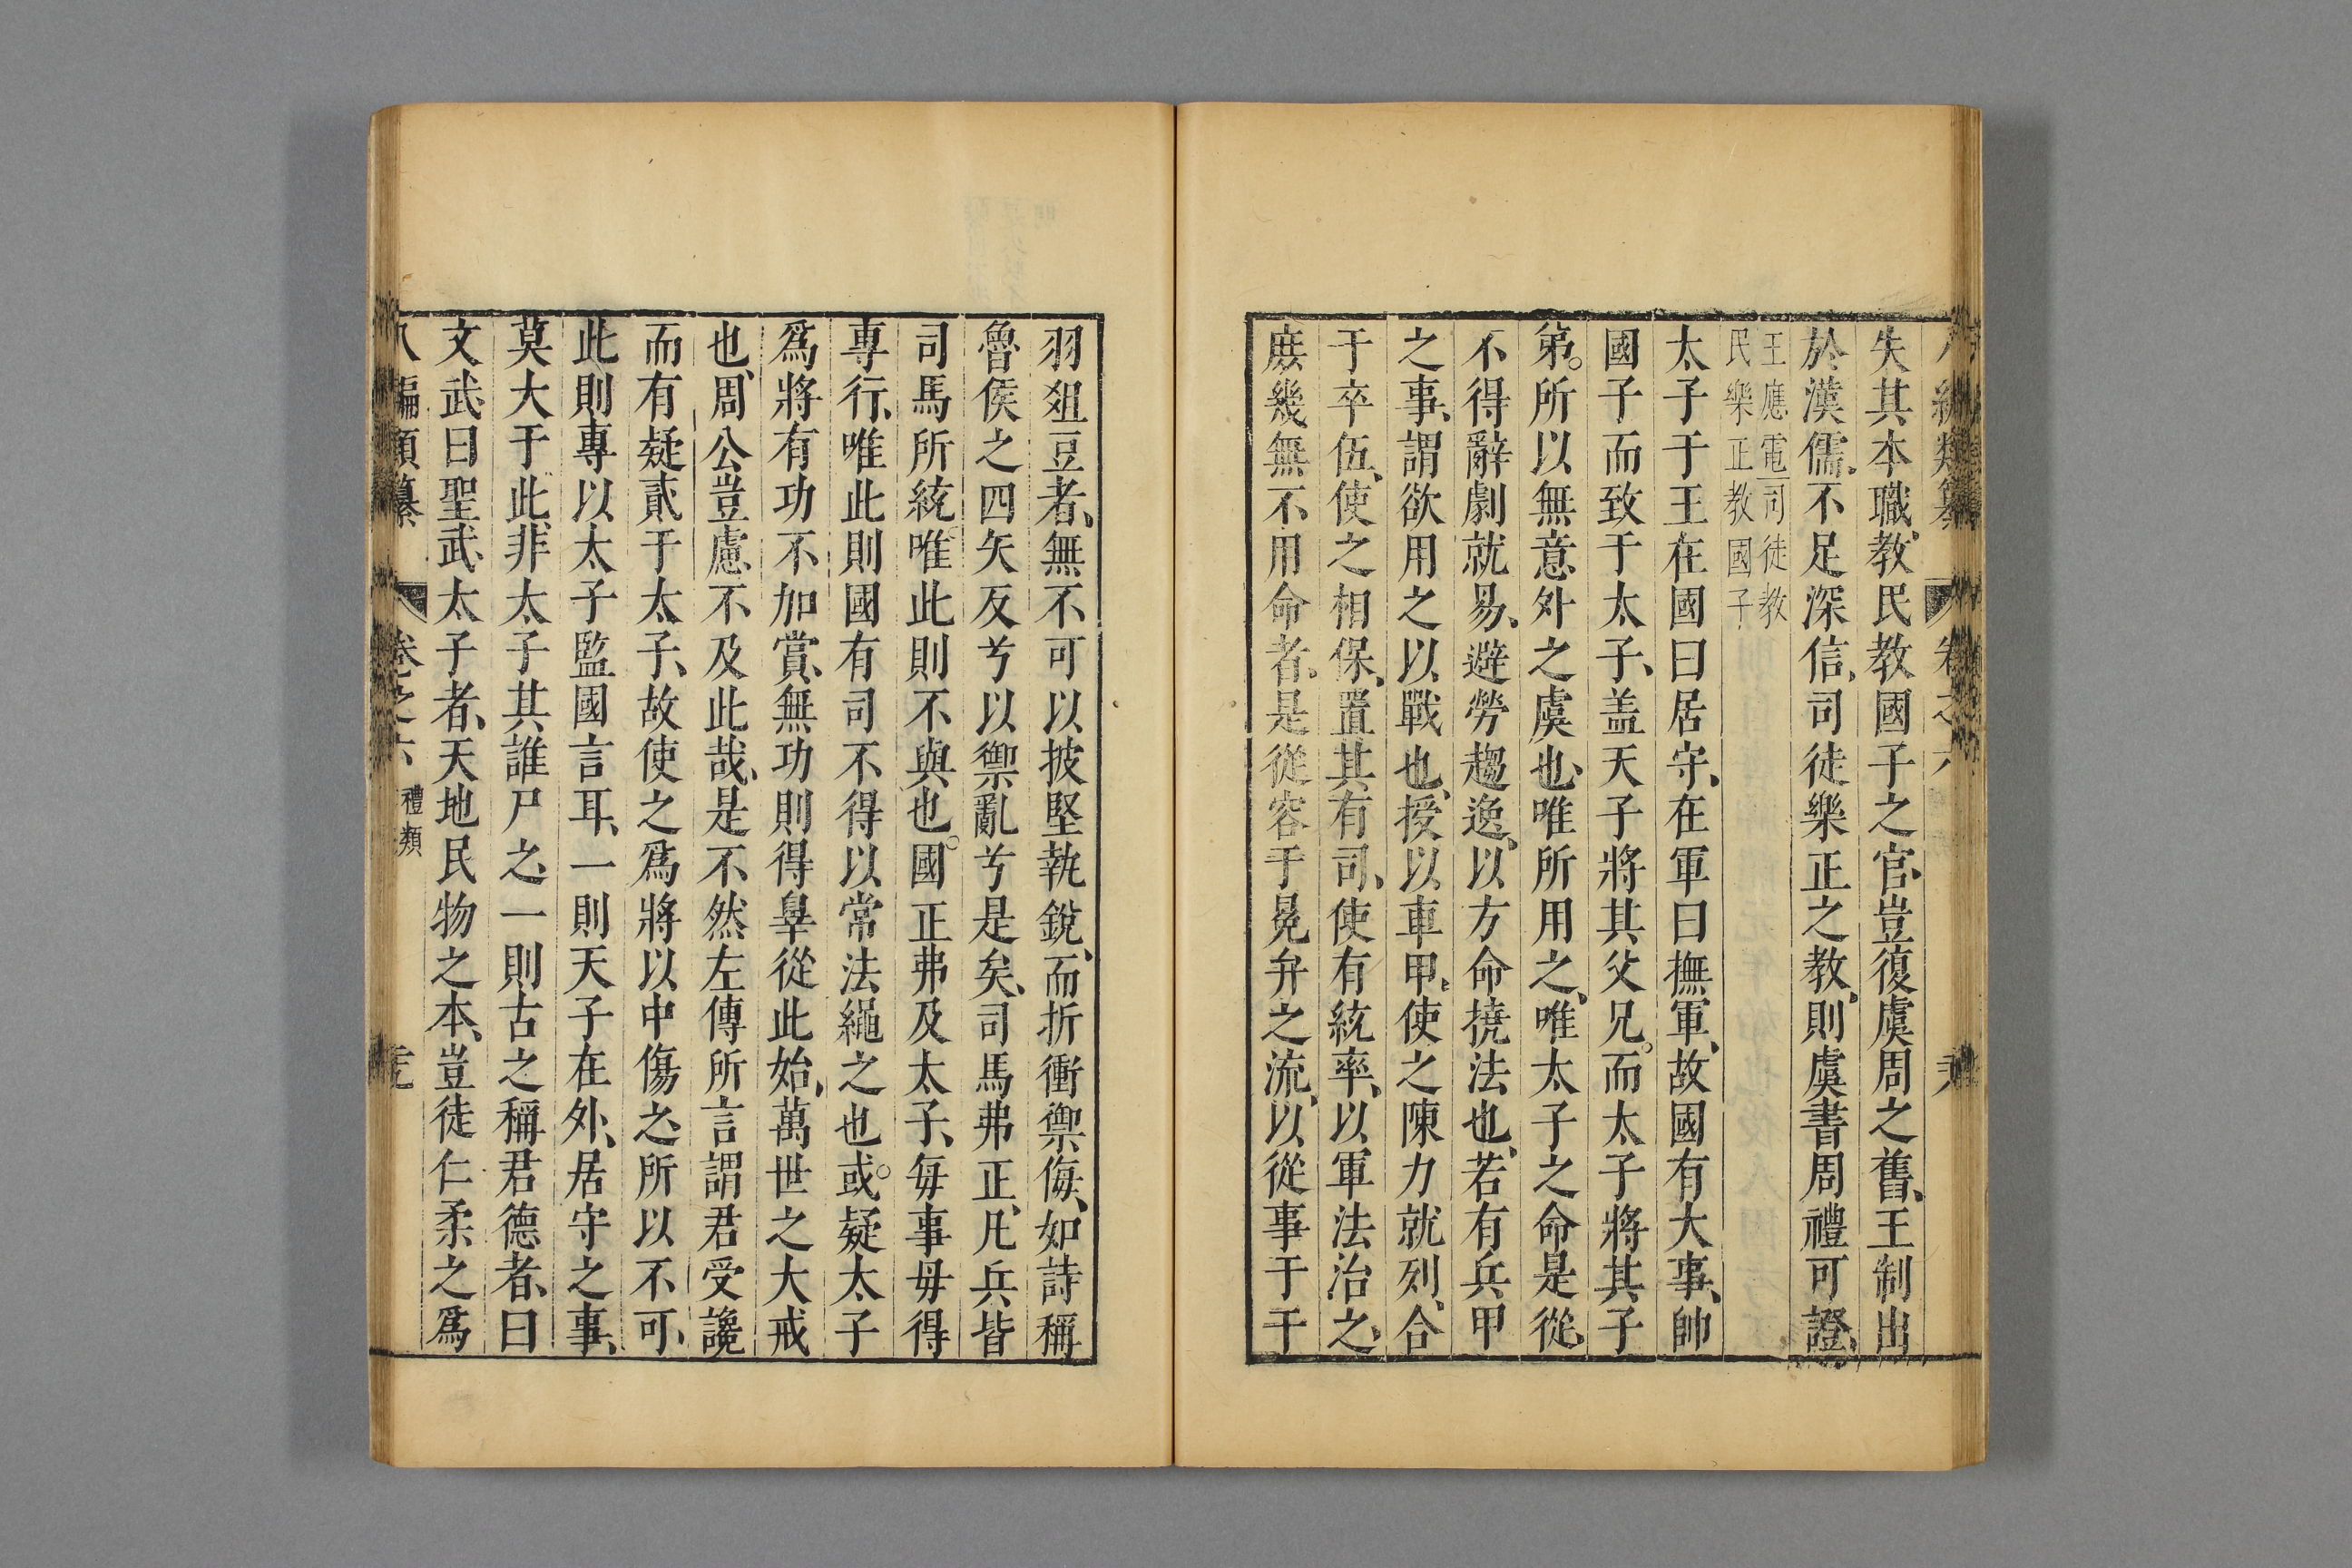 失其本職、教民教國子之官、豈復虞周之舊、王制出
於漢儒、不足深信、司徒樂正之教、則虞書周禮可證、
王應電司徒教
民樂正教國子
太子于王在國曰居守、在軍曰撫軍、故國有大事、帥
國子而致于太子、盖天子將其父兄。而太子將其子
弟。所以無意外之虞也、唯所用之、唯太子之命是從、
不得辭劇就易、避勞趨逸、以方命撓法也、若有兵甲
之事、謂欲用之以戰也、授以車甲、使之陳力就列、合
于卒伍、使之相保、置其有司、使有統率、以軍法治之、
庶幾無不用命者、是從容于冕弁之流、以從事于干
羽俎豆者、無不可以披堅執銳、而折衝禦侮、如詩稱
魯侯之四矢反兮以禦亂兮是矣、司馬弗正、凡兵皆
司馬所統唯此則不與也。國正弗及太子、毎事毋得
專行、唯此則國有司不得以常法繩之也。或疑太子
爲將有功不加賞、無功則得辠從此始、萬世之大戒
也、周公豈慮不及此哉、是不然左傳所言謂君受讒
而有疑貳于太子、故使之爲將以中傷之、所以不可、
此則專以太子監國言耳、一則天子在外、居守之事、
莫大于此、非太子其誰尸之、一則古之稱君德者、曰
文武、曰聖武、太子者、天地民物之本、豈徒仁柔之爲
八編類纂 卷之六 禮類